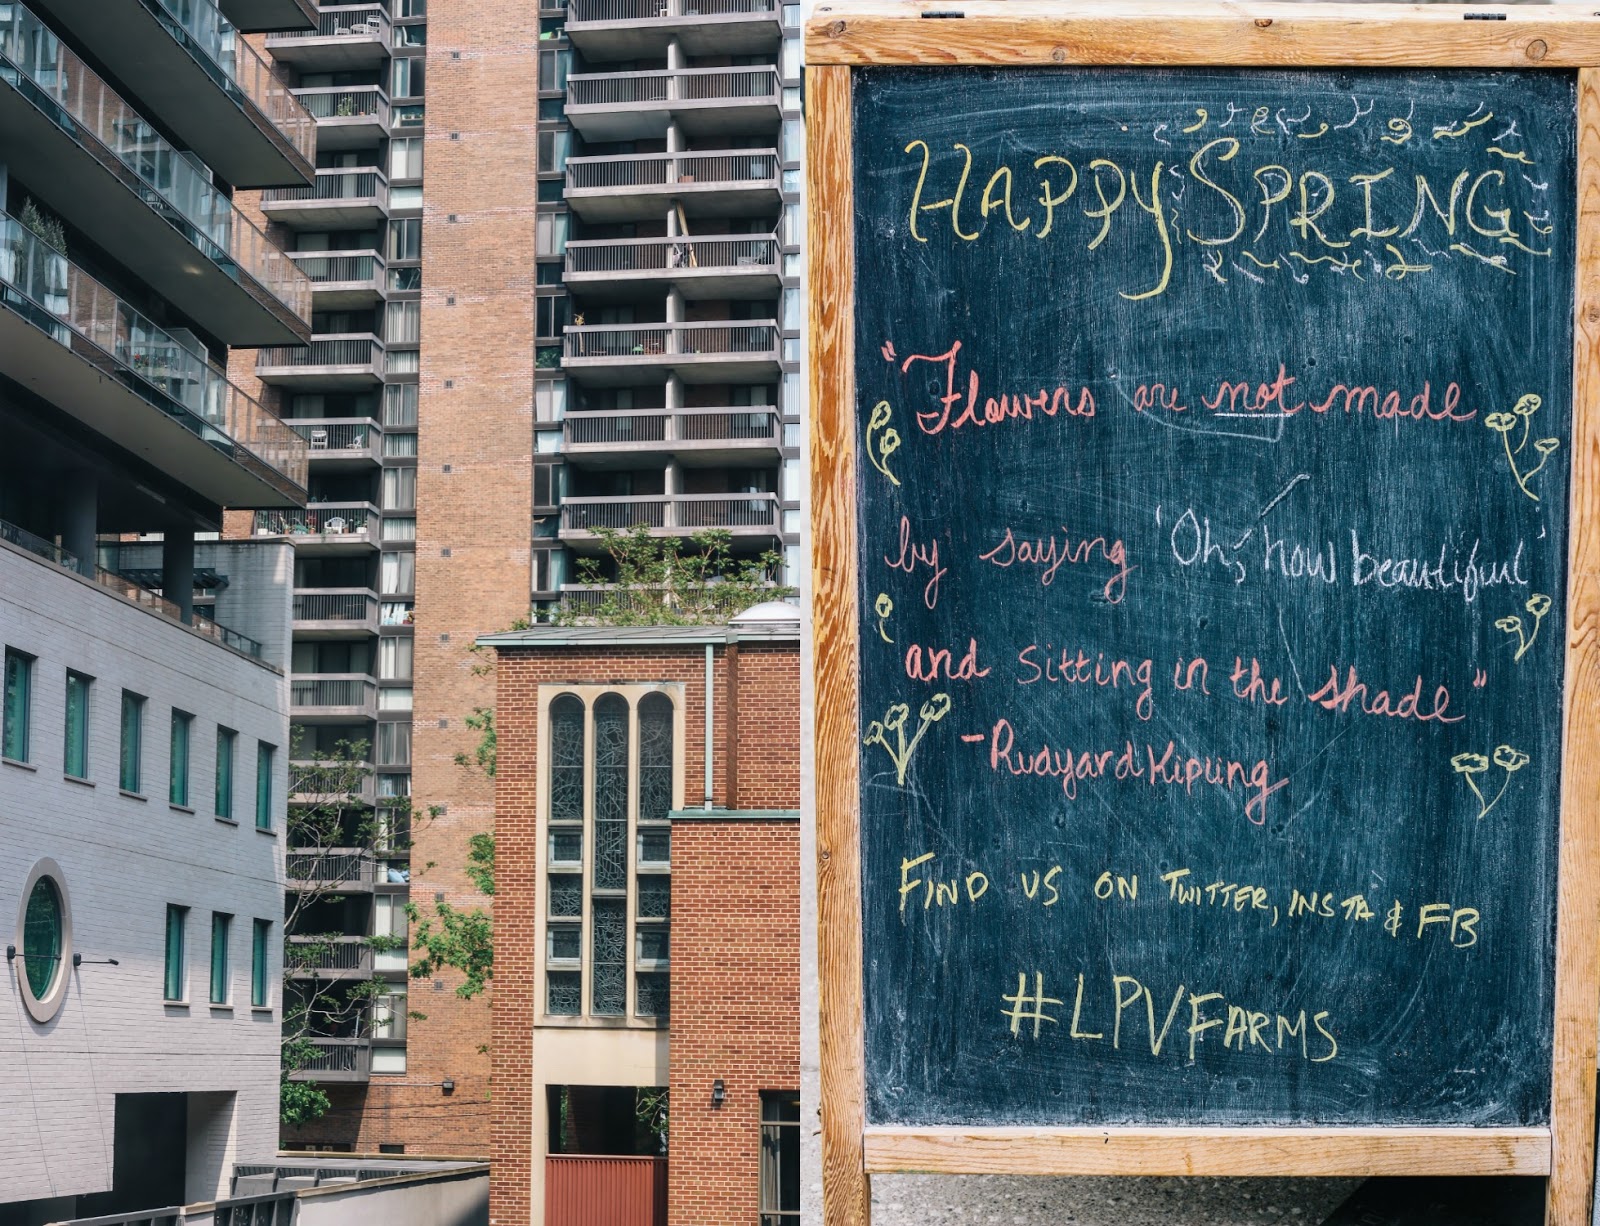 HAPPY SPRING
"Flowers are not made
by saying 'Oh, how beautiful'
and sitting in the shade"
-Rudyard Kipling
FIND US ON TWITTER, INSTA & FB
#LPVFARMS